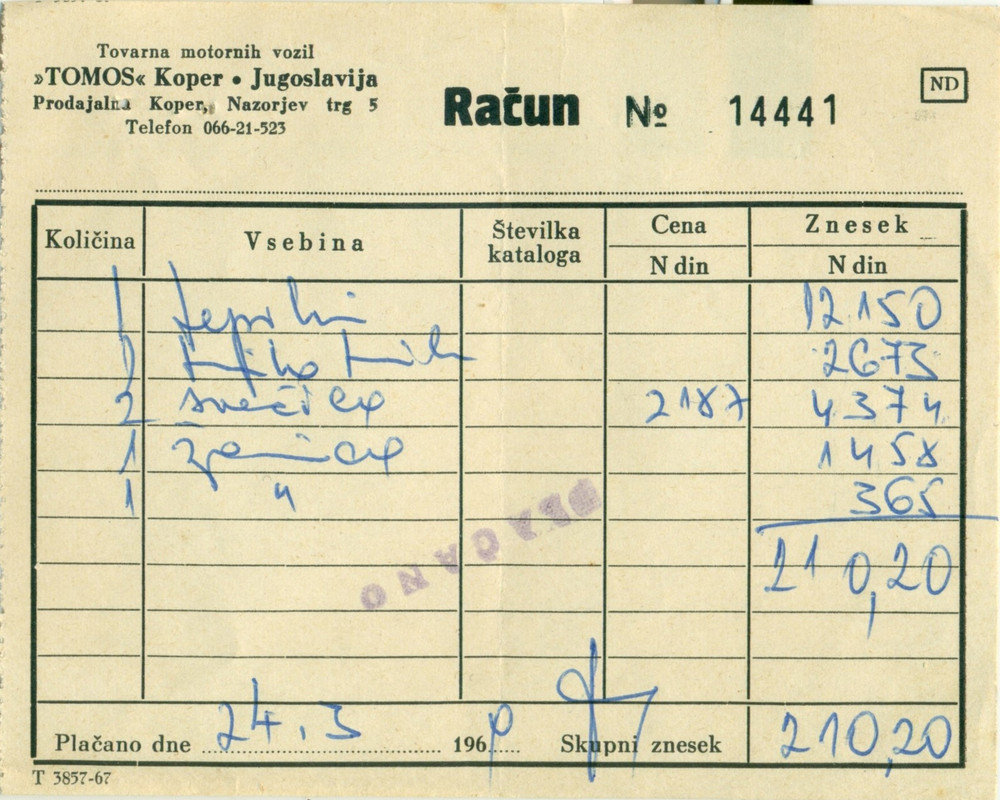 Tovarna motornih vozil
»TOMOS« Koper • Jugoslavija
Prodajalna Koper, Nazorjev trg 5
Telefon 066-21-523
Račun № 14441
ND
Količina Vsebina Številka kataloga Cena N din Znesek N din
1 12150
1 2673
2 svečke 2187 4374
1 1458
1 " 365
210,20
PLAČANO
Plačano dne 24.3 196 Skupni znesek 210,20
T 3857-67